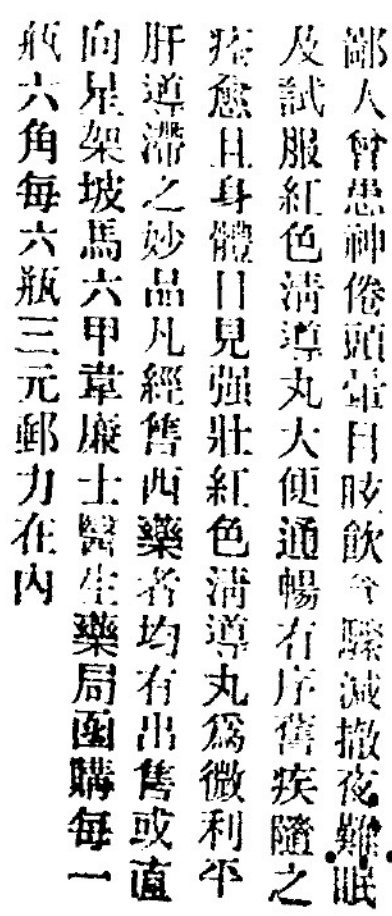 鄙人曾患神倦頭暈目眩飲食驟減撤夜難眠
及試服紅色清導丸大便通暢有序舊疾隨之
痊愈且身體日見强壯紅色清導丸爲微利平
肝導滯之妙品凡經售西藥者均有出售或直
向星架坡馬六甲韋廉士醫生藥局函購每一
瓶六角每六瓶三元郵力在內